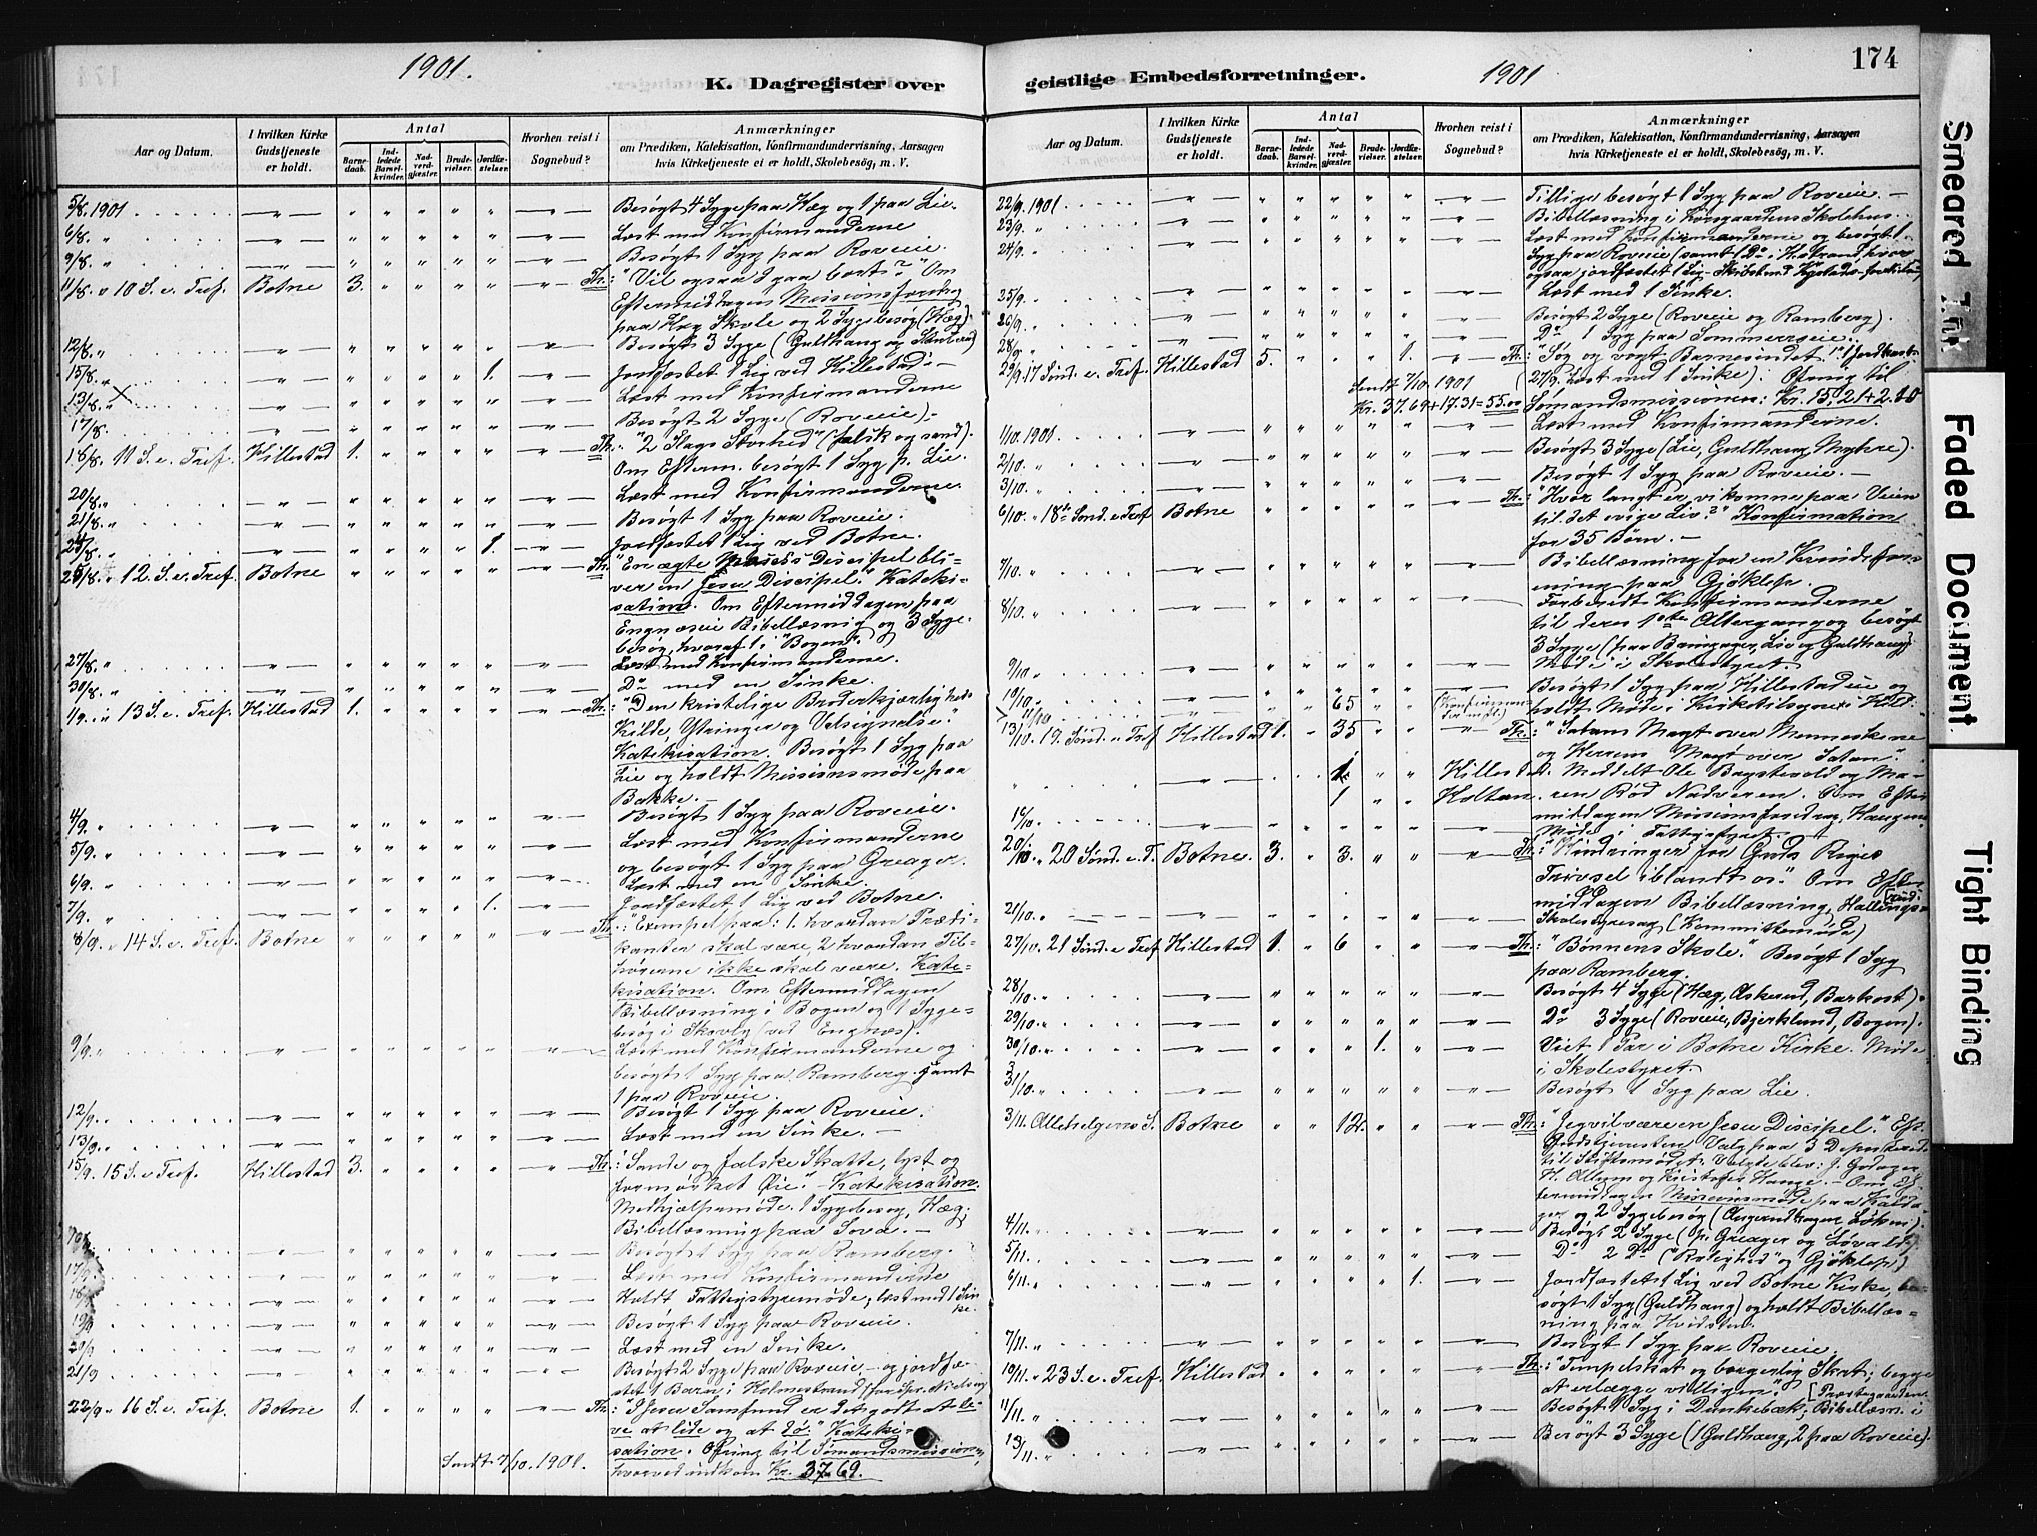 1901.
K. Dagregister over
Aar og Datum.
I hvilken Kirke Gudstjeneste er holdt.
Antal
Barnedaab.
Indledede Barselkvinder.
Nadverdgjæster.
Brudevielser.
Jordfæstelser.
Hvorhen reist i Sognebud?
Anmærkninger
om Prædiken, Katekisation, Konfirmandundervisning, Aarsagen
hvis Kirketjeneste ei er holdt, Skolebesøg, m. V.
5/8. 1901 Besøgt 4 Syge paa Hæg og 1 paa Lie.
6/8. " Læst med Konfirmanderne.
9/8. " Besøgt 1 Syg paa Roveie.
11/8. " 10 S. e. Tref. Botne 3. Th.: "Vil ogsaa I gaa bort?" Om
Eftermiddagen Missionsforedrag
paa Hæg Skole og 2 Sygebesøg (Hæg).
12/8. " Besøgt 3 Syge (Guldhaug og
15/8. " 1. Jordfæstet 1 Lig ved Hillestad.
13/8. " Læst med Konfirmanderne
17/8. Besøgt 2 Syge (Roveie).
18/8. 11 S. e. Tref. Hillestad 1. Th.: "2 Slags Storhed" (falsk og sand).
Om Efterm. besøgt 1 Syg p. Lie.
20/8. " Læst med Konfirmanderne.
21/8. " Besøgt 1 Syg paa Roveie.
" 1. Jordfæstet 1 Lig ved Botne.
25/8. " 12 S. e. Tref. Botne Th. "En ægte Discipel bli-
ver en Jesu Discipel." Kateki-
sation. Om Eftermiddagen paa
Engnæseie Bibellæsning og 3 Syge-
besøg, hvoraf 1 i "Bogen".
27/8. " Læst med Konfirmanderne.
30/8. " Do med en Sinke.
1/9. " 13 S. e. Tref. Hillestad 1. Th.: "Den kristelige Broderkjærligheds
Kilde, Ytringer og Velsignelse."
Katekisation. Besøgt 1 Syg paa
Lie og holdt Missionsmøde paa
Bakke.
4/9. " Besøgt 1 Syg paa Roveie.
5/9. " Læst med Konfirmanderne
og besøgt 1 Syg paa Greager.
6/9. " Læst med en Sinke.
7/9. " 1. Jordfæstet 1 Lig ved Botne.
8/9. " 14 S. e. Tref. Botne Th.: "Exempel paa: 1. hvordan Prædi-
kanter skal være, 2 hvordan Til-
hørerne ikke skal være. Kate-
kisation. Om Eftermiddagen
Bibellæsning i Bogen og 1 Syge-
besøg i Skovly (ved Engnæs).
9/9. " Læst med Konfirmanderne og
besøgt 1 Syg paa Ramberg samt
1 paa Roveie.
12/9. " Besøgt 1 Syg paa Roveie.
13/9. " Læst med en Sinke.
15/9. 15 S. e Tref. Hillestad 3. Th.: "Sande og falske Skatte, lyst og
formørket Øie." Katekisation.
Medhjælpermøde. 1 Sygebesøg, Hæg.
Bibellæsning paa Sova.
Besøgt 1 Syg paa Ramberg.
17/9. Læst med Konfirmanderne
Holdt Fattigstyremøde, læst med 1 Sin-
ke.
Besøgt 1 Syg paa Roveie.
20/9 Læst med en Sinke.
21/9 Besøgt 2 Syge paa Roveie og jordfæ-
stet 1 Barn i Holmestrand
22/9 " 16 S. e. Tref. Botne 1. Th.: "I Jesu Samfund er det godt at le-
ve at lide og at dø." Kateki-
sation. Ofring til Sømandsmissionen,
Sendt 7/10. 1901. hvorved indkom Kr. 37.69.
geistlige Embedsforretninger.
1901
174
Aar og Datum.
I hvilken Kirke Gudstjeneste er holdt.
Antal
Barnedaab.
Indledede Barselkvinder.
Nadverdgjæster.
Brudevielser.
Jordfæstelser.
Hvorhen reist i Sognebud?
Anmærkninger
om Prædiken, Katekisation, Konfirmandundervisning, Aarsagen
hvis Kirketjeneste ei er holdt, Skolebesøg, m. V.
22/9. 1901 Tillige besøgt 1 Syg paa Roveie.
23/9. " Bibellæsning i Skolehus.
24/9. " Læst med Konfirmanderne og besøgt 1
Syg paa Roveie (samt 1 Do i H.strand, hvor
ogsaa jordfæstet 1 Lig
25/9. " Læst med 1 Sinke.
26/9. " Besøgt 2 Syge (Roveie og Ramberg).
28/9 " Do 1 Syg paa Sommerseie.
29/9. 17 Sønd. e. Tref. Hillestad 5. 1. Th.: "Søg og vogt Barnesindet!"
Sendt 7/10. 1901 (27/9. Læst med 1 Sinke). Ofring til
Kr. 37.69 + 17.31 = 55.00 Sømandsmissionen: Kr. 15,21 + 2.10
1/10. 1901 Læst med Konfirmanderne.
2/10. " Besøgt 3 Syge (Lie, Guldhaug, Myhre).
3/10. " Besøgt 1 Syg paa Roveie.
6/10. " 18de Sønd. e Tref Botne Th.: "Hvor langt er vi komne paa Veien
til det evige Liv?" Konfirmation
for 35 Børn.
7/10. " Bibellæsning for en Kvindefor-
ening paa Gjøklep.
8/10. " Forberedt Konfirmanderne
til deres 1ste Altergang og besøgt
3 Syge (paa Bringager, Lie og Guldhaug)
9/10. " Møde i Skolestyret.
10/10. " 65 (Konfirman- Besøgt 1 Syg paa Hillestadeie og
holdt Møde i Kirketilsynet i Hild.
13/10. 19. Sønd. e Tref Hillestad 1. 35 Th.: "Satans Magt over Menneskene
og Herrens Magt over Satan."
1. Hillestad. Meddelt Ole Bagstevold og Ma-
1 Holtan. ren Rød Nadveren. Om Efter-
middagen Missionsforedrag, Haugen.
Møde i Fattigstyret.
20/10. " 20 Sønd. e. T. Botne. 3. 3. Th.: "Hindringer for Guds Riges
Trivsel iblandt os." Om Efter-
middagen Bibellæsning,
21/10. " Skolestyresag (Kommittemøde)
27/10. 21 Sønd. e Tref Hillestad 1. 6 Th.: "Bønnens Skole." Besøgt 1 Syg
paa Ramberg.
28/10. " Besøgt 4 Syge (Hæg, Askerud, Barkost).
29/10. " Do 3 Syge (Roveie, Bjerklund, Bogen).
30/10. " 1. Viet 1 Par i Botne Kirke. Møde
i Skolestyret.
31/10. " Besøgt 1 Syg paa Lie.
3/11. Allehelgens S. Botne 12. Th.: "Jeg vil være en Jesu Discipel." Eft.
Gudstjenesten Valg paa 3 Deputerede
til Stiftsmødet. Valgte blev: J. Godager
H. Allum og Kristofer Hauge. Om Ef-
termiddagen Missionsmøde paa
og 2 Sygebesøg
4/11. " Besøgt 2 Syge (p. Greager og Løvald)
5/11. " Do 2 Do ("Rolighed" og Gjøklep)
6/11. " 1. Jordfæstet 1 Lig ved Botne Kirke, be-
søgt 1 Syg (Guldhaug) og holdt Bibellæs-
ning paa Hvidsten.
7/11. " Besøgt 1 Syg paa Roveie.
10/11. " 23 S. e. Tref. Hillestad Th.: "Tempelskat og borgerlig Skat; begge
at erlægge villigen."
11/11. " Besøgt 1 Syg i Dunkebæk; Bibellæsn. i [Præstegaarden.
13/11. " Besøgt 3 Syge (1 Guldhaug, 2 paa Roveie).
Smeared Ink
Faded Document
Tight Binding